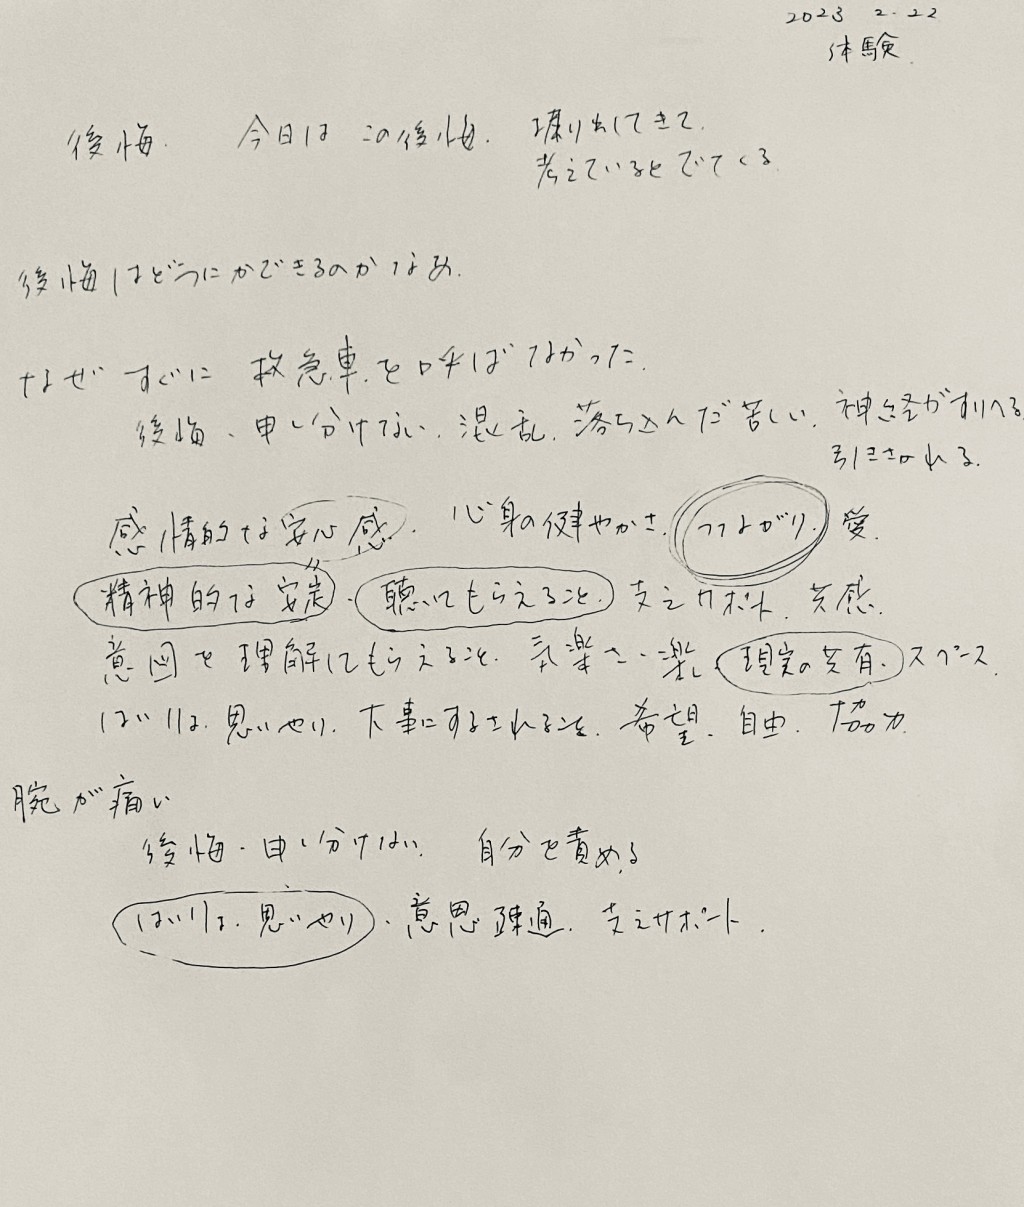 2023 2.22
体験
後悔. 今日は この後悔. 掘り出してきて.
考えているとでてくる
後悔はどうにかできるのかなぁ.
なぜ すぐに 救急車を呼ばなかった.
後悔、申し分けない. 混乱. 落ち込んだ 苦しい. 神経がすりへる
引きさかれる.
感情的な安心感. 心身の健やかさ. つながり. 愛.
精神的な安定、聴いてもらえること. 支え サポート. 共感.
意図を理解してもらえること. 気楽さ・楽し、現実の共有、スペース.
はいりょ. 思いやり. 大事にするされること. 希望. 自由. 協力.
腕が痛い
後悔、申し分けない. 自分を責める
はいりょ. 思いやり、意思疎通. 支え サポート.